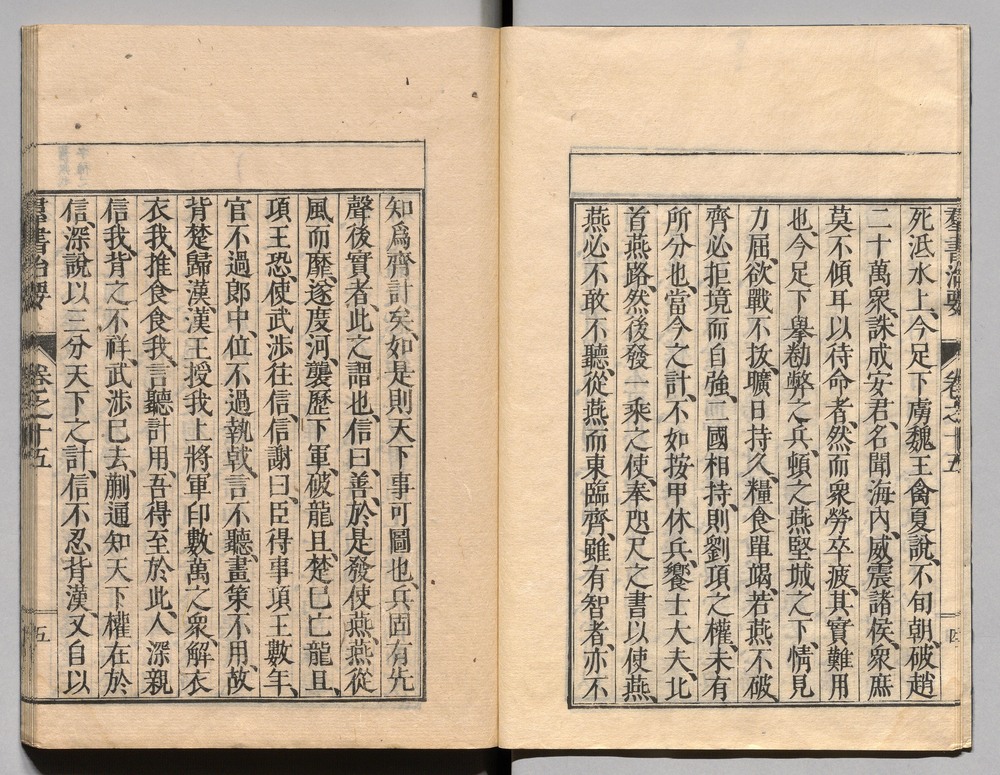 羣書治要 卷之十五 四
死泜水上、今足下虜魏王、禽夏說、不旬朝、破趙
二十萬衆、誅成安君、名聞海內、威震諸侯、衆庶
莫不傾耳以待命者、然而衆勞卒疲、其實難用
也、今足下擧勌弊之兵、頓之燕堅城之下、情見
力屈、欲戰不拔、曠日持久、糧食單竭、若燕不破、
齊必拒境而自強、二國相持、則劉項之權、未有
所分也、當今之計、不如按甲休兵、饗士大夫、北
首燕路、然後發一乘之使、奉咫尺之書以使燕、
燕必不敢不聽、從燕而東臨齊、雖有智者、亦不
知爲齊計矣、如是則天下事可圖也、兵固有先
聲後實者、此之謂也、信曰、善、於是發使燕、燕從
風而靡、遂度河、襲歷下軍、破龍且、楚已亡龍且、
項王恐、使武涉往信、信謝曰、臣得事項王數年、
官不過郞中、位不過執戟、言不聽、畫策不用、故
背楚歸漢、漢王授我上將軍印數萬之衆、解衣
衣我、推食食我、言聽計用、吾得至於此、人深親
信我、背之不祥、武涉已去、蒯通知天下權在於
信、深說以三分天下之計、信不忍背漢、又自以
羣書治要 卷之十五 五